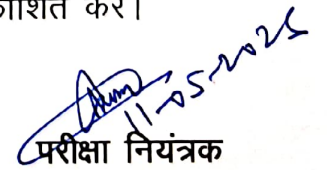 करें।
11-05-2025
परीक्षा नियंत्रक